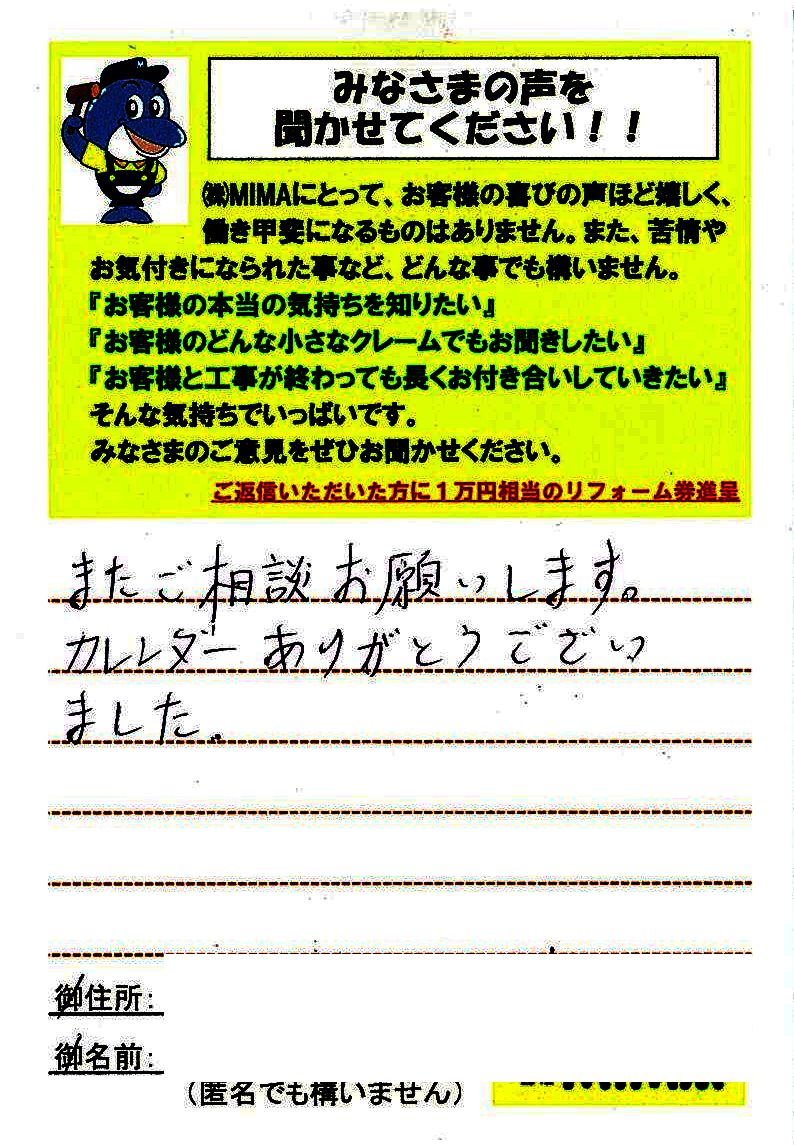 みなさまの声を
聞かせてください！！
㈱MIMAにとって、お客様の喜びの声ほど嬉しく、
働き甲斐になるものはありません。また、苦情や
お気付きになられた事など、どんな事でも構いません。
『お客様の本当の気持ちを知りたい』
『お客様のどんな小さなクレームでもお聞きしたい』
『お客様と工事が終わっても長くお付き合いしていきたい』
そんな気持ちでいっぱいです。
みなさまのご意見をぜひお聞かせください。
ご返信いただいた方に１万円相当のリフォーム券進呈
またご相談お願いします。
カレンダーありがとうござい
ました。
御住所：
御名前：
（匿名でも構いません）